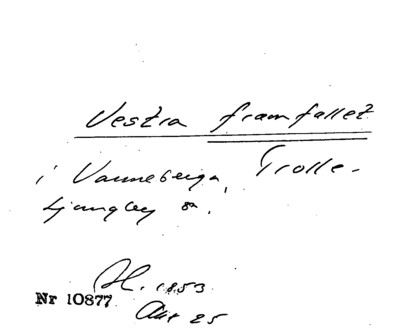 Vestra framfallet
i Vanneberga, Trolle-
Ljungby sn.
H. 1853
Nr 10877
Akt 25